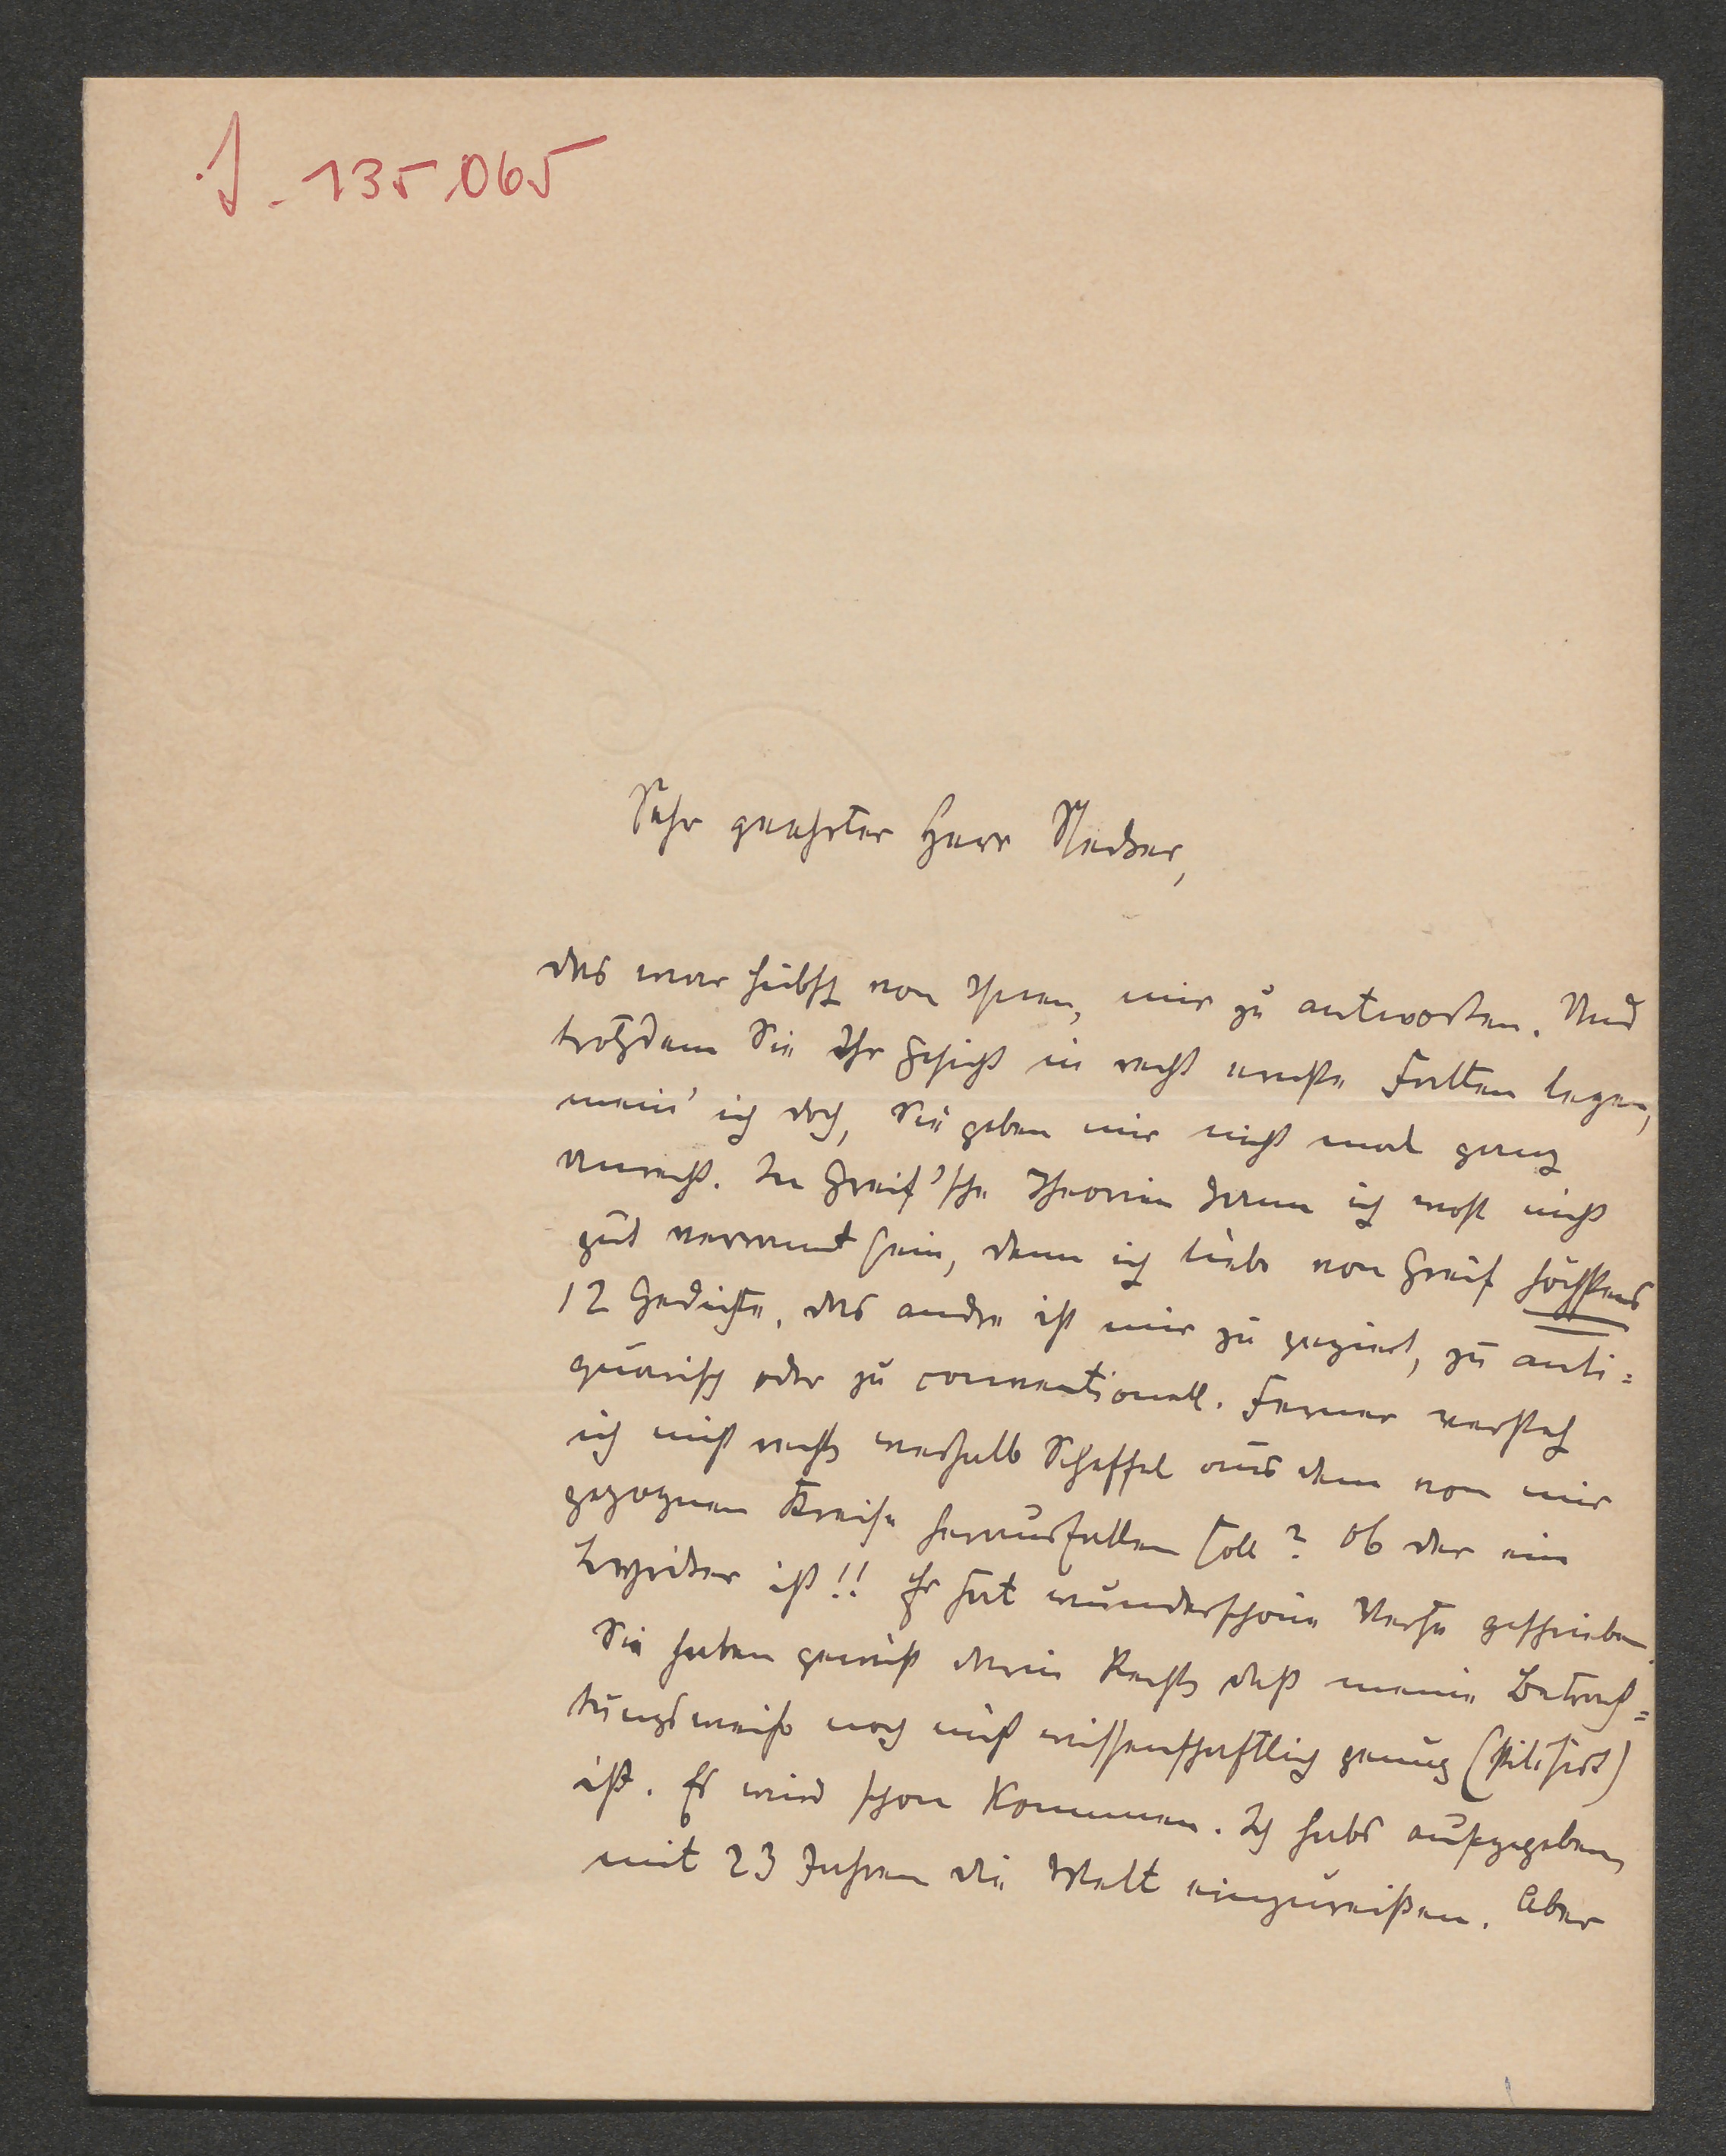 J. 135.065
Sehr geehrter Herr Necker,
das war hübsch von Ihnen, mir zu antworten. Und
trotzdem Sie Ihr Gesicht in recht ernste Falten legen,
mein' ich doch, Sie geben mir nicht mal ganz
unrecht. In Greif'sche Theorien kann ich wohl nicht
gut verrannt sein, denn ich liebe von Greif höchstens
12 Gedichte, das andre ist mir zu geziert, zu anti=
quarisch oder zu conventionell. Ferner versteh
ich nicht recht weshalb Scheffel aus dem von mir
gezognen Kreise herausfallen soll? Ob der ein
Lyriker ist!! Er hat wunderschöne Verse geschrieben.
Sie haben gewiß darin Recht, daß meine Betrach=
tungsweise noch nicht wissenschaftlich genug (stilisirt)
ist. Es wird schon kommen. Ich habs aufgegeben,
mit 23 Jahren die Welt einzureißen. Aber